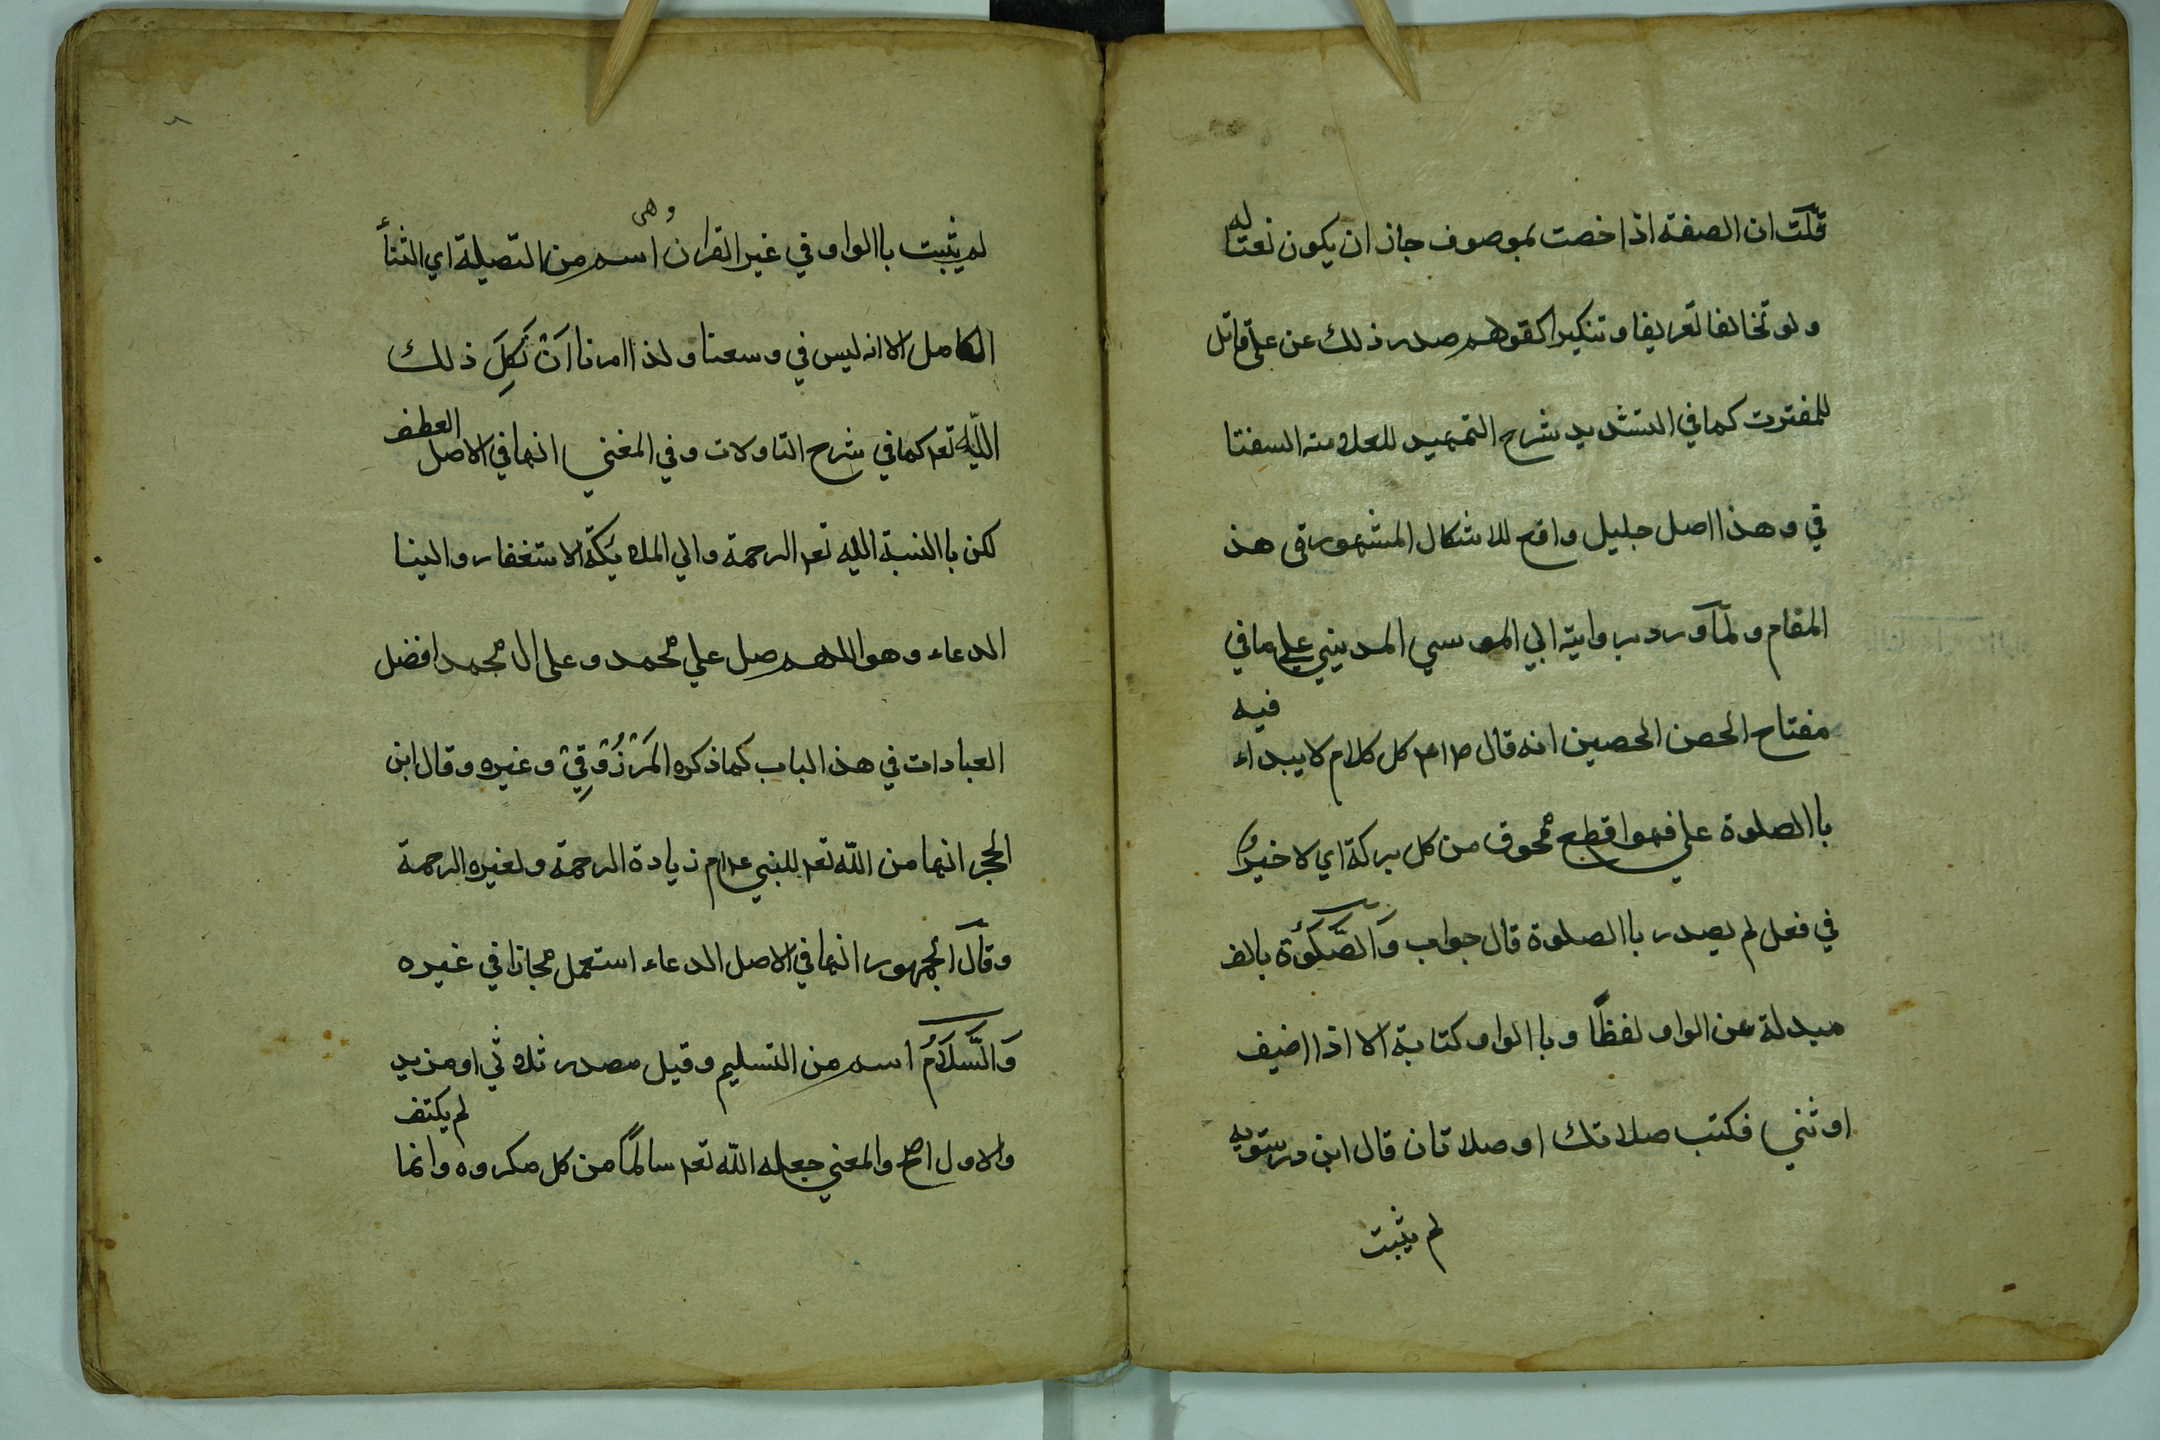 قلت ان الصفة اذا خصت بموصوف جاز ان يكون نعتا له
ولو تخالفا تعريفا وتنكيرا كقولهم صدر ذلك عن علي قاتل
للمفترت كما في التشديد شرح التمهيد للعلامته السفنتا
قي وهذا اصل جليل واقع للاشكال المشهور في هذ
المقام ولما ورد بروايته ابي الموسي المديني علي ما في
مفتاح الحصن الحصين انه قال م اعم كل كلام لا يبداء فيه
باالصلوة علي فهو اقطع ممحوق من كل بركة اي لا خير
في فعل لم يصدر باالصلوة قال جواب وَالصَّلَوةُ بالف
مبدلة عن الواو لفظًا وباالواو كتابة الا اذا اضيف
او ثني فكتب صلاتك او صلاتان قال ابن درستويه
لم يثبت
٨
لم يثبت باالواو في غير القران وهى اسم من التصيلة اي الثنأ
الكامل الا انه ليس في وسعنا ولذا امرنا اَنْ نَكِلَ ذلك
اللّٰيه تعه كما في شرح التاولات وفي المغني انها في الاصل العطف
لكن باالنسبة الليه تعه الرحمة والي الملايكة الاستغفار والينا
الدعاء وهو اللهم صل علي محمد وعلى ال محمد افضل
العبادات في هذ الباب كما ذكره المَرْزُوْقِيْ وغيره وقال ابن
الحجر انها من اللّه تعه للنبي عم زيادة الرحمة ولغيره الرحمة
وقال الجمهور انها في الاصل الدعاء استعمل مجازا في غيره
وَالسَّلَامُ اسم من التسليم وقيل مصدر ثلاثي او مزيد
والاول اصح والمعني جعله اللّه تعه سالمًا من كل مكروه وانما لم يكتف